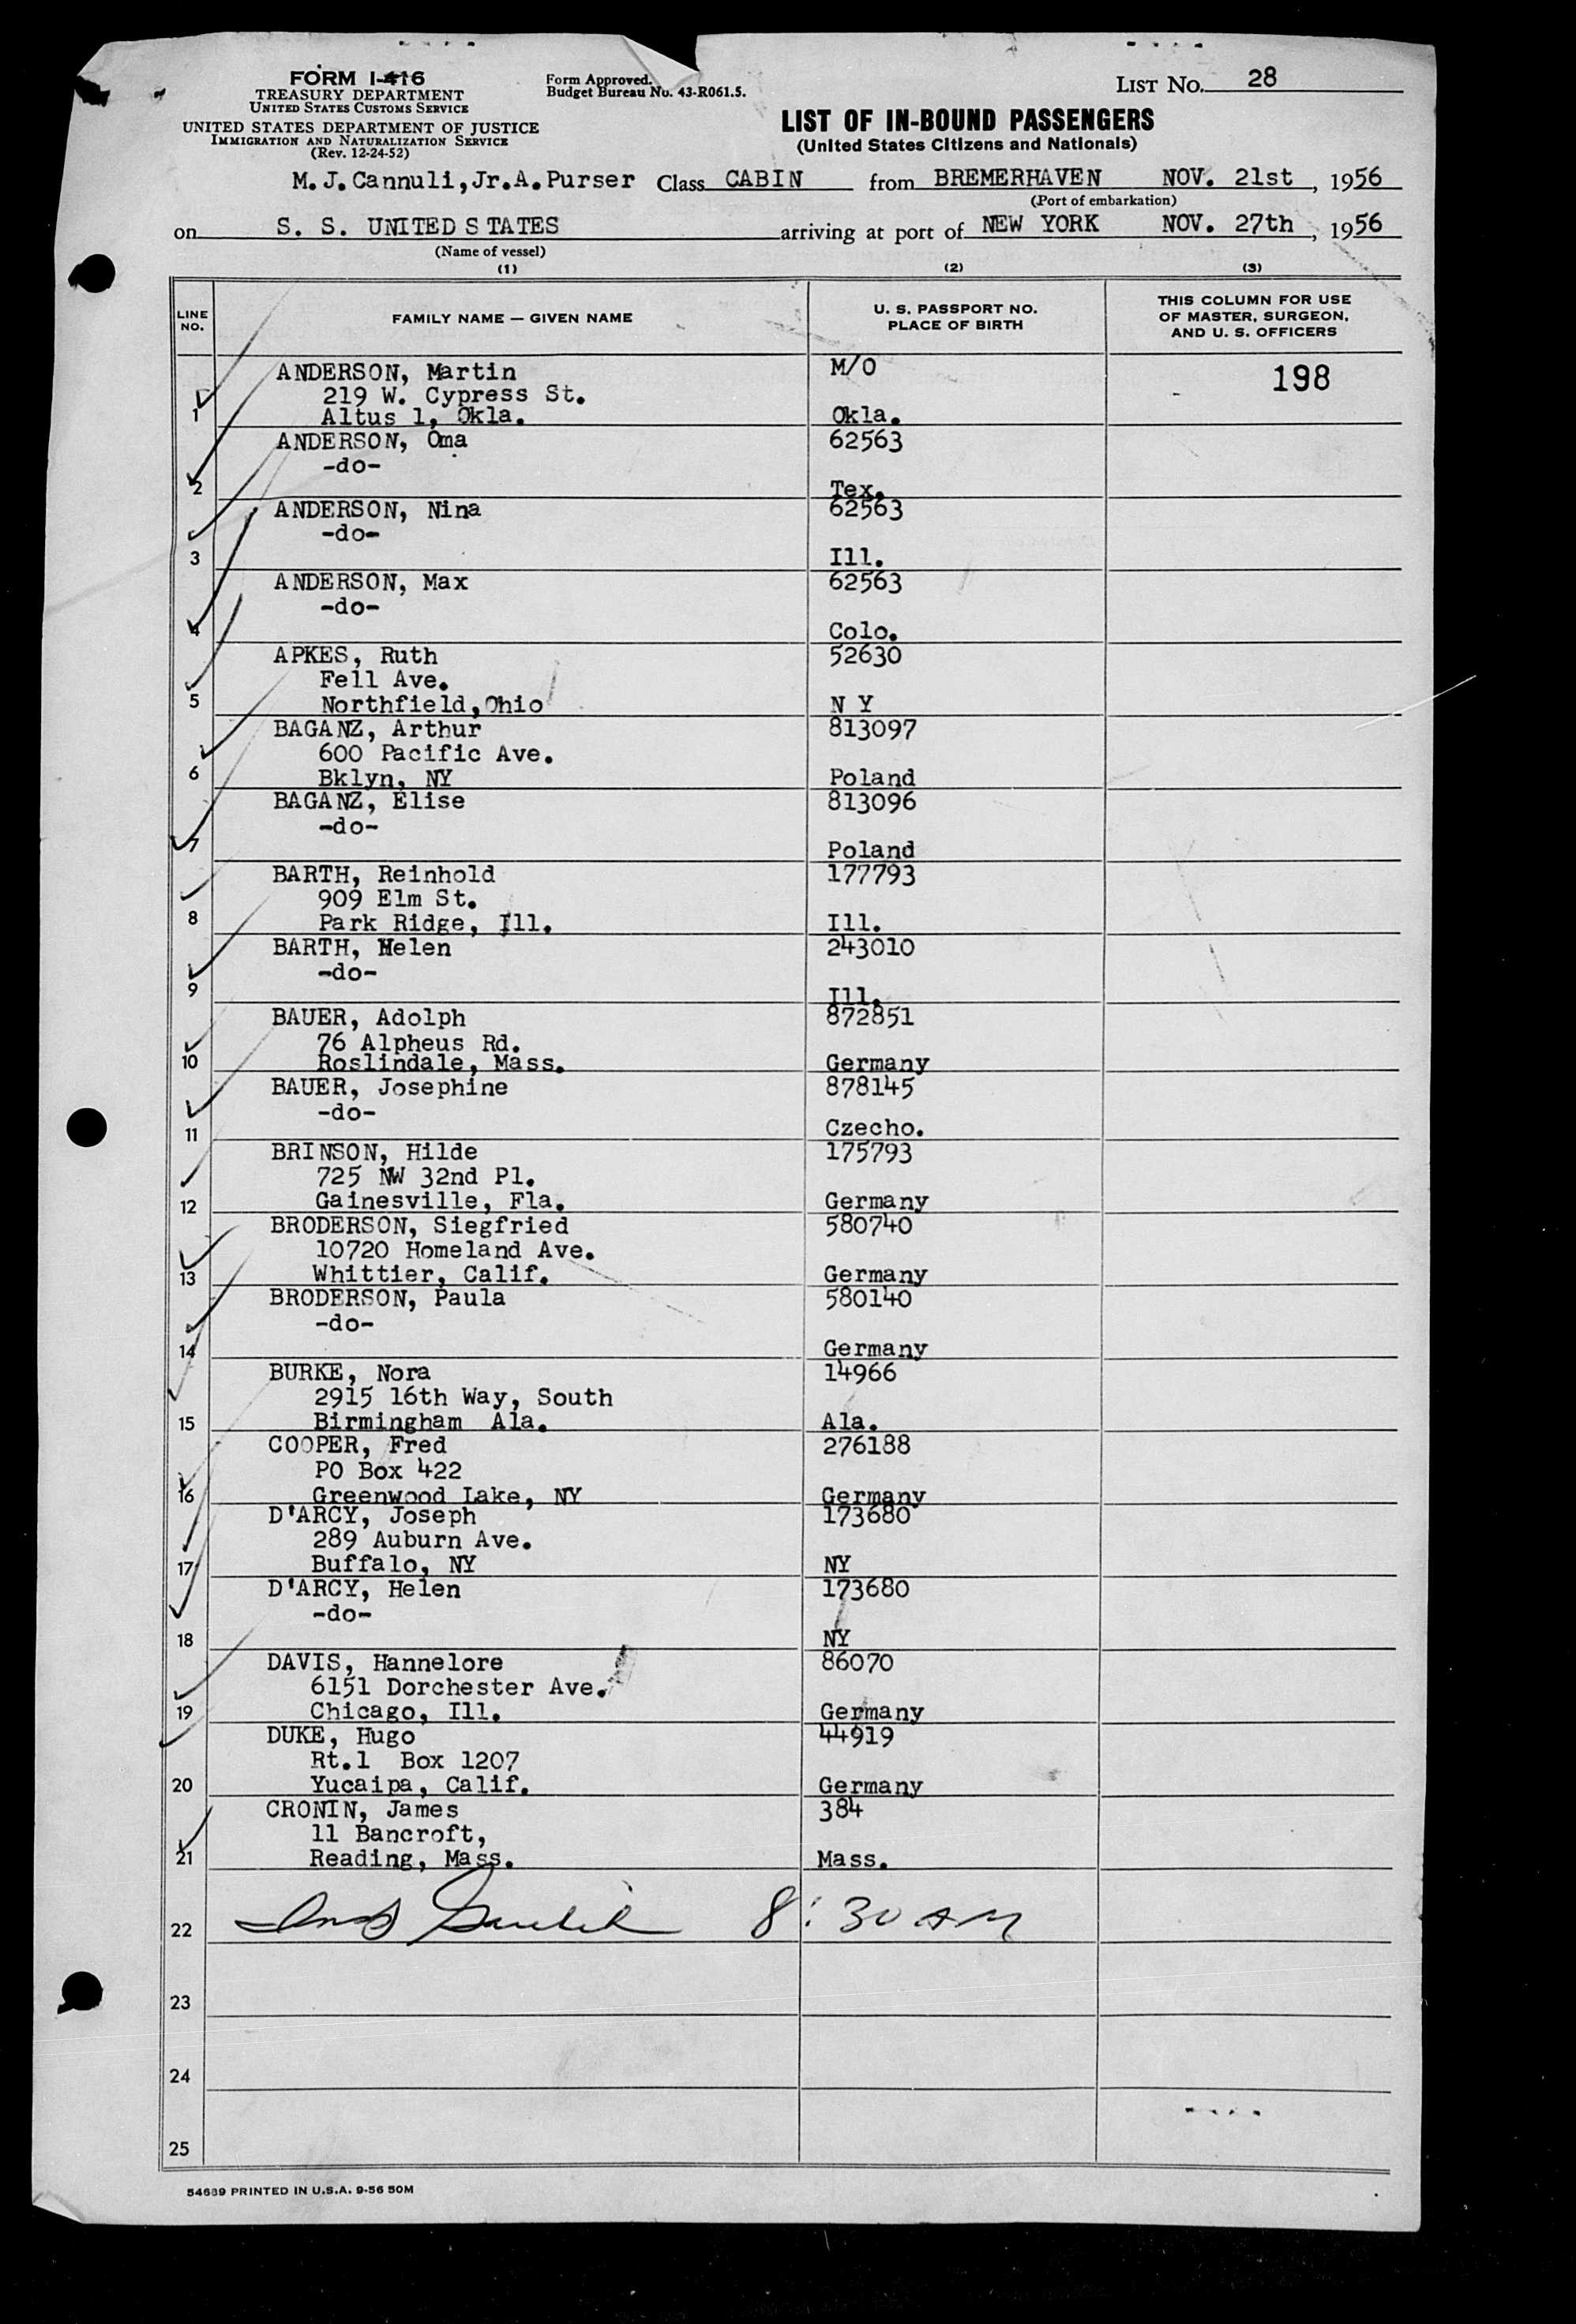 FORM I-416
TREASURY DEPARTMENT
UNITED STATES CUSTOMS SERVICE
UNITED STATES DEPARTMENT OF JUSTICE
IMMIGRATION AND NATURALIZATION SERVICE
(Rev. 12-24-52)
Form Approved.
Budget Bureau No. 43-R061.5.
LIST NO. 28
LIST OF IN-BOUND PASSENGERS
(United States Citizens and Nationals)
M.J.Cannuli,Jr.A.Purser Class CABIN from BREMERHAVEN NOV. 21st, 1956
(Port of embarkation)
on S. S. UNITED STATES arriving at port of NEW YORK NOV. 27th, 1956
(Name of vessel)
(1) (2) (3)
LINE NO.
FAMILY NAME — GIVEN NAME
U. S. PASSPORT NO.
PLACE OF BIRTH
THIS COLUMN FOR USE
OF MASTER, SURGEON,
AND U. S. OFFICERS
ANDERSON, Martin M/O 198
219 W. Cypress St.
1 Altus 1, Okla. Okla.
ANDERSON, Oma 62563
-do-
2 Tex.
ANDERSON, Nina 62563
-do-
3 Ill.
ANDERSON, Max 62563
-do-
4 Colo.
APKES, Ruth 52630
Fell Ave.
5 Northfield,Ohio N Y
BAGANZ, Arthur 813097
600 Pacific Ave.
6 Bklyn, NY Poland
BAGANZ, Elise 813096
-do-
7 Poland
BARTH, Reinhold 177793
909 Elm St.
8 Park Ridge, Ill. Ill.
BARTH, Helen 243010
-do-
9 Ill.
BAUER, Adolph 872851
76 Alpheus Rd.
10 Roslindale, Mass. Germany
BAUER, Josephine 878145
-do-
11 Czecho.
BRINSON, Hilde 175793
725 NW 32nd Pl.
12 Gainesville, Fla. Germany
BRODERSON, Siegfried 580740
10720 Homeland Ave.
13 Whittier, Calif. Germany
BRODERSON, Paula 580140
-do-
14 Germany
BURKE, Nora 14966
2915 16th Way, South
15 Birmingham Ala. Ala.
COOPER, Fred 276188
PO Box 422
16 Greenwood Lake, NY Germany
D'ARCY, Joseph 173680
289 Auburn Ave.
17 Buffalo, NY NY
D'ARCY, Helen 173680
-do-
18 NY
DAVIS, Hannelore 86070
6151 Dorchester Ave.
19 Chicago, Ill. Germany
DUKE, Hugo 44919
Rt.1 Box 1207
20 Yucaipa, Calif. Germany
CRONIN, James 384
11 Bancroft,
21 Reading, Mass. Mass.
22 8:30 AM
23
24
25
54689 PRINTED IN U.S.A. 9-56 50M